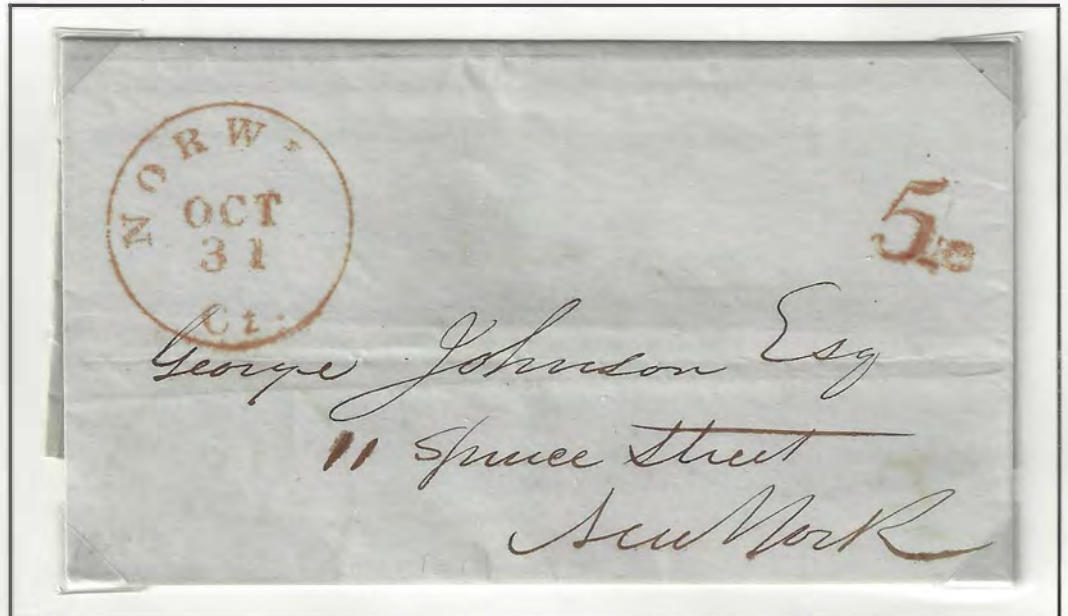 NORW
OCT
31
Ct.
5
George Johnson Esq
11 Spruce Street
New York